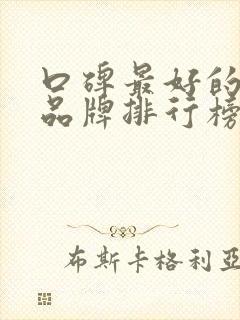 口碑最好的
品牌排行榜
布斯卡格利亚